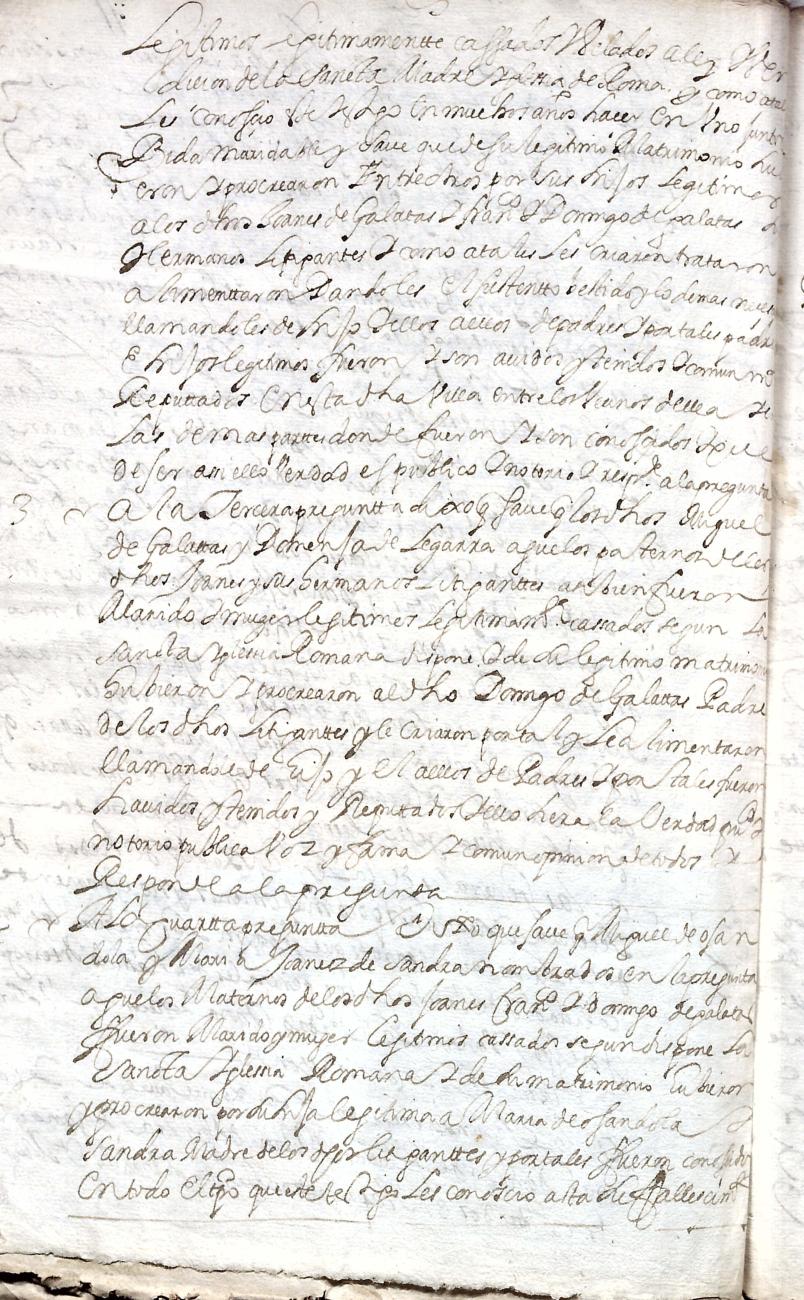 Legitimos legitimamentte cassados Velados a ley y Ven
dicion de la Sancta Madre Iglessia de Roma. y como atal
Les conoscio este testigo en muchos años hacer en Uno junto
Bida maridable y Save que de su legitimo Matrimonio hu
eron y procrearon Entre otros por sus hijos Legitimos
a los dhos Joanes de Galatas y franco y Domingo de galatas
Hermanos Litigantes y como atales Les criaron trataron
alimenttaron Dandoles El sustentto bestido y lo demas neces
llamandoles de hijos Y ellos aellos de padres y portales padres
E hijos legitimos fueron y son auidos y tenidos y comun mte
Reputtados En esta dha Villa entre los Vecinos della y
Las demas parttes donde fueron y son conoscidos y que
de ser assi ello Verdad es publico y notorio y respde a la pregunta
3 A la Tercera preguntta dixo q Save q los dhos Miguel
de Galattas y Domenja de Legarra aguelos pasternos de los
dhos Joanes y sus hermanos Litiganttes tanbien fueron
Marido y muger legitimos legitimamte cassados segun La
sancta Iglessia Romana dispone y de su legitimo matrimonio
hubieron y procrearon al dho Domingo de Galattas Padre
de los dhos Litiganttes y le criaron por tal y Le alimentaron
llamandole de hijo y el aellos de Padres y por tales fueron
havidos y tenidos y Reputados y ello hera la Verdad puco
notorio publica Voz y fama y comun opinion de todos y
Responde a la pregunta
A la quartta preguntta dixo que save q Miguel de osan
dola y Maria Joaniz de sandra nombrados en la pregunta
aguelos Maternos de los dhos Joanes franco y Domingo de galatas
fueron Marido y muger legitimos cassados segun dispone La
Sancta Iglessia Romana y de su matrimonio hubieron
y procrearon por su hija legitima a Maria de osandola y
sandra Madre de los dhos litiganttes y por tales fueron conoscidos
En todo El tpo que este testigo Les conoscio asta que fallescieron